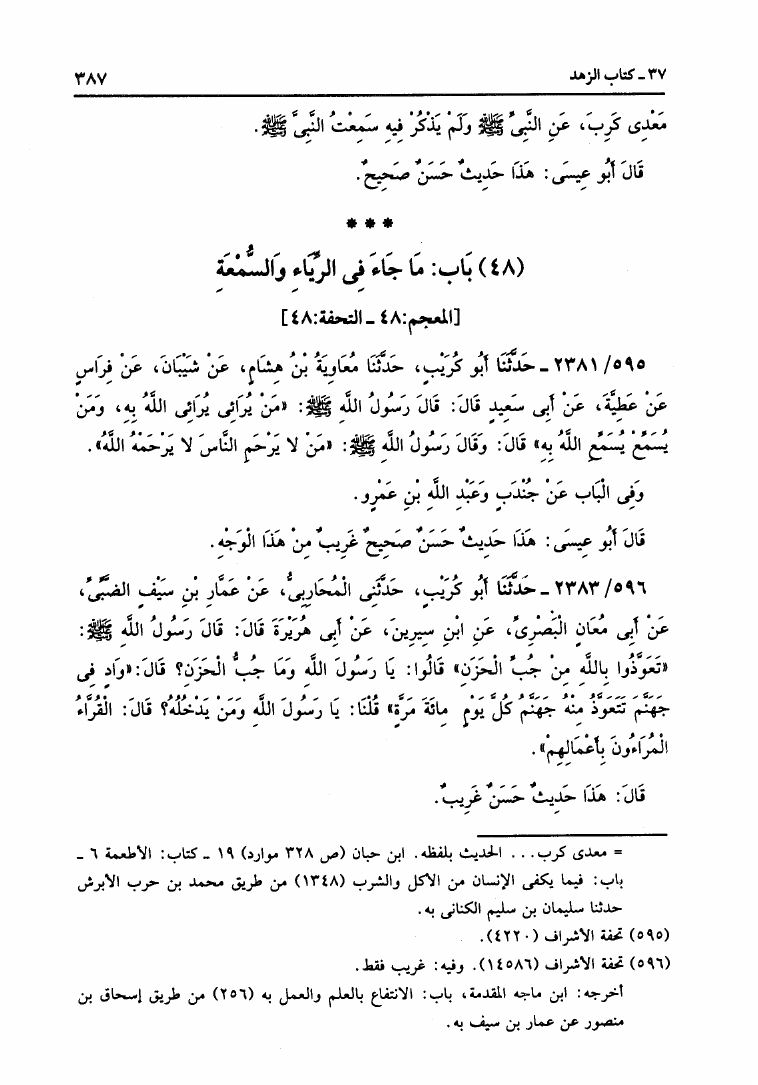 ٣٧ ـ كتاب الزهد ٣٨٧
مَعْدِى كَرِبَ، عَنِ النَّبِىِّ ﷺ وَلَمْ يَذْكُرْ فِيهِ سَمِعْتُ النَّبِىَّ ﷺ.
قَالَ أَبُو عِيسَى: هَذَا حَدِيثٌ حَسَنٌ صَحِيحٌ.
* * *
(٤٨) بَاب: مَا جَاءَ فِى الرِّيَاءِ وَالسُّمْعَةِ
[المعجم:٤٨ ـ التحفة:٤٨]
٢٣٨١/٥٩٥ ـ حَدَّثَنَا أَبُو كُرَيْبٍ، حَدَّثَنَا مُعَاوِيَةُ بْنُ هِشَامٍ، عَنْ شَيْبَانَ، عَنْ فِرَاسٍ
عَنْ عَطِيَّةَ، عَنْ أَبِى سَعِيدٍ قَالَ: قَالَ رَسُولُ اللَّهِ ﷺ: «مَنْ يُرَائِى يُرَائِى اللَّهُ بِهِ، وَمَنْ
يُسَمِّعْ يُسَمِّعِ اللَّهُ بِهِ» قَالَ: وَقَالَ رَسُولُ اللَّهِ ﷺ: «مَنْ لا يَرْحَمِ النَّاسَ لا يَرْحَمْهُ اللَّهُ».
وَفِى الْبَاب عَنْ جُنْدَبٍ وَعَبْدِ اللَّهِ بْنِ عَمْرٍو.
قَالَ أَبُو عِيسَى: هَذَا حَدِيثٌ حَسَنٌ صَحِيحٌ غَرِيبٌ مِنْ هَذَا الْوَجْهِ.
٢٣٨٣/٥٩٦ ـ حَدَّثَنَا أَبُو كُرَيْبٍ، حَدَّثَنِى الْمُحَارِبِىُّ، عَنْ عَمَّارِ بْنِ سَيْفٍ الضَّبِّىِّ،
عَنْ أَبِى مُعَانٍ الْبَصْرِىِّ، عَنِ ابْنِ سِيرِينَ، عَنْ أَبِى هُرَيْرَةَ قَالَ: قَالَ رَسُولُ اللَّهِ ﷺ:
«تَعَوَّذُوا بِاللَّهِ مِنْ جُبِّ الْحَزَنِ» قَالُوا: يَا رَسُولَ اللَّهِ وَمَا جُبُّ الْحَزَنِ؟ قَالَ:«وَادٍ فِى
جَهَنَّمَ تَتَعَوَّذُ مِنْهُ جَهَنَّمُ كُلَّ يَوْمٍ مِائَةَ مَرَّةٍ» قُلْنَا: يَا رَسُولَ اللَّهِ وَمَنْ يَدْخُلُهُ؟ قَالَ: الْقُرَّاءُ
الْمُرَاءُونَ بِأَعْمَالِهِمْ».
قَالَ: هَذَا حَدِيثٌ حَسَنٌ غَرِيبٌ.
= معدى كرب... الحديث بلفظه. ابن حبان (ص ٣٢٨ موارد) ١٩ ـ كتاب: الأطعمة ٦ ـ
باب: فيما يكفى الإنسان من الأكل والشرب (١٣٤٨) من طريق محمد بن حرب الأبرش
حدثنا سليمان بن سليم الكنانى به.
(٥٩٥) تحفة الأشراف (٤٢٢٠).
(٥٩٦) تحفة الأشراف (١٤٥٨٦). وفيه: غريب فقط.
أخرجه: ابن ماجه المقدمة، باب: الانتفاع بالعلم والعمل به (٢٥٦) من طريق إسحاق بن
منصور عن عمار بن سيف به.